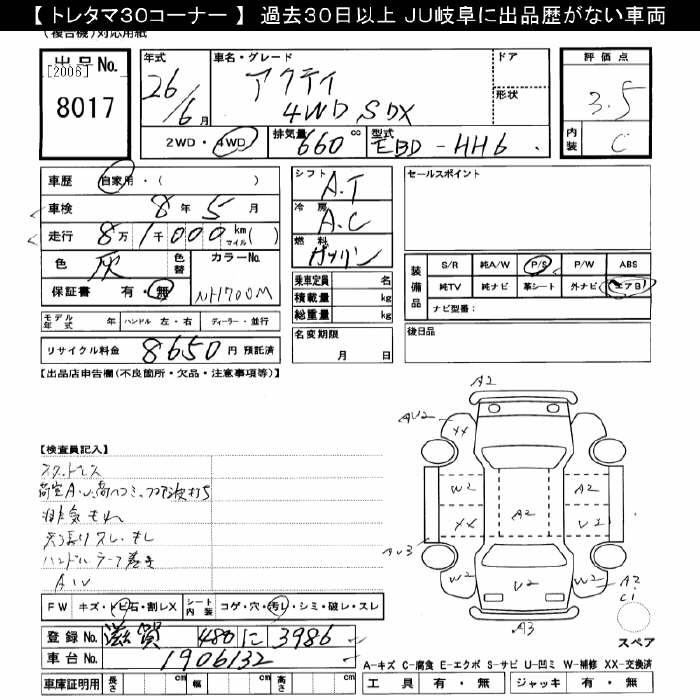 【 トレタマ30コーナー 】 過去30日以上 JU岐阜に出品歴がない車両
(複合機)対応用紙
出品No.
[2006]
8017
年式
26/6月
車名・グレード
アクティ
4WD SDX
ドア
形状
評価点
3.5
内装
C
2WD・4WD
排気量
660 cc
型式
EBD-HH6
車歴 自家用・( )
車検 8年5月
走行 8万1千000 km マイル( )
色 灰
色替
カラーNo.
NH700M
保証書 有・無
シフト
A.T
冷房
A.C
燃料
ガソリン
乗車定員 名
積載量 kg
総重量 kg
名変期限
月 日
セールスポイント
装備品
S/R 純A/W P/S P/W ABS
純TV 純ナビ 革シート 外ナビ エアB
ナビ型番:
後日品
モデル年式 年 ハンドル 左・右 ディーラー・並行
リサイクル料金 8650円 預託済
【出品店申告欄(不良箇所・欠品・注意事項等)】
【検査員記入】
排気もれ
A2
AU2
XX
W2
A2
A2
XX
U1
AU3
W2
U2
W2
A2
C1
A3
スペア
FW キズ・トビ石・割レX
シート内装 コゲ・穴・汚レ・シミ・破レ・スレ
登録No. 滋賀 480 に 3986
車台No. 1906132
車庫証明用 長さ cm 幅 cm 高さ cm
A-キズ C-腐食 E-エクボ S-サビ U-凹ミ W-補修 XX-交換済
工具 有・無 ジャッキ 有・無